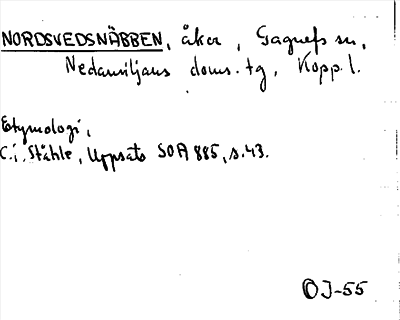 NORDSVEDSNÄBBEN, åker, Gagnefs sn,
Nedansiljans doms. tg, Kopp. l.
Etymologi,
C.i. Ståhle, Uppsats SOA 885, s.43.
OJ-55